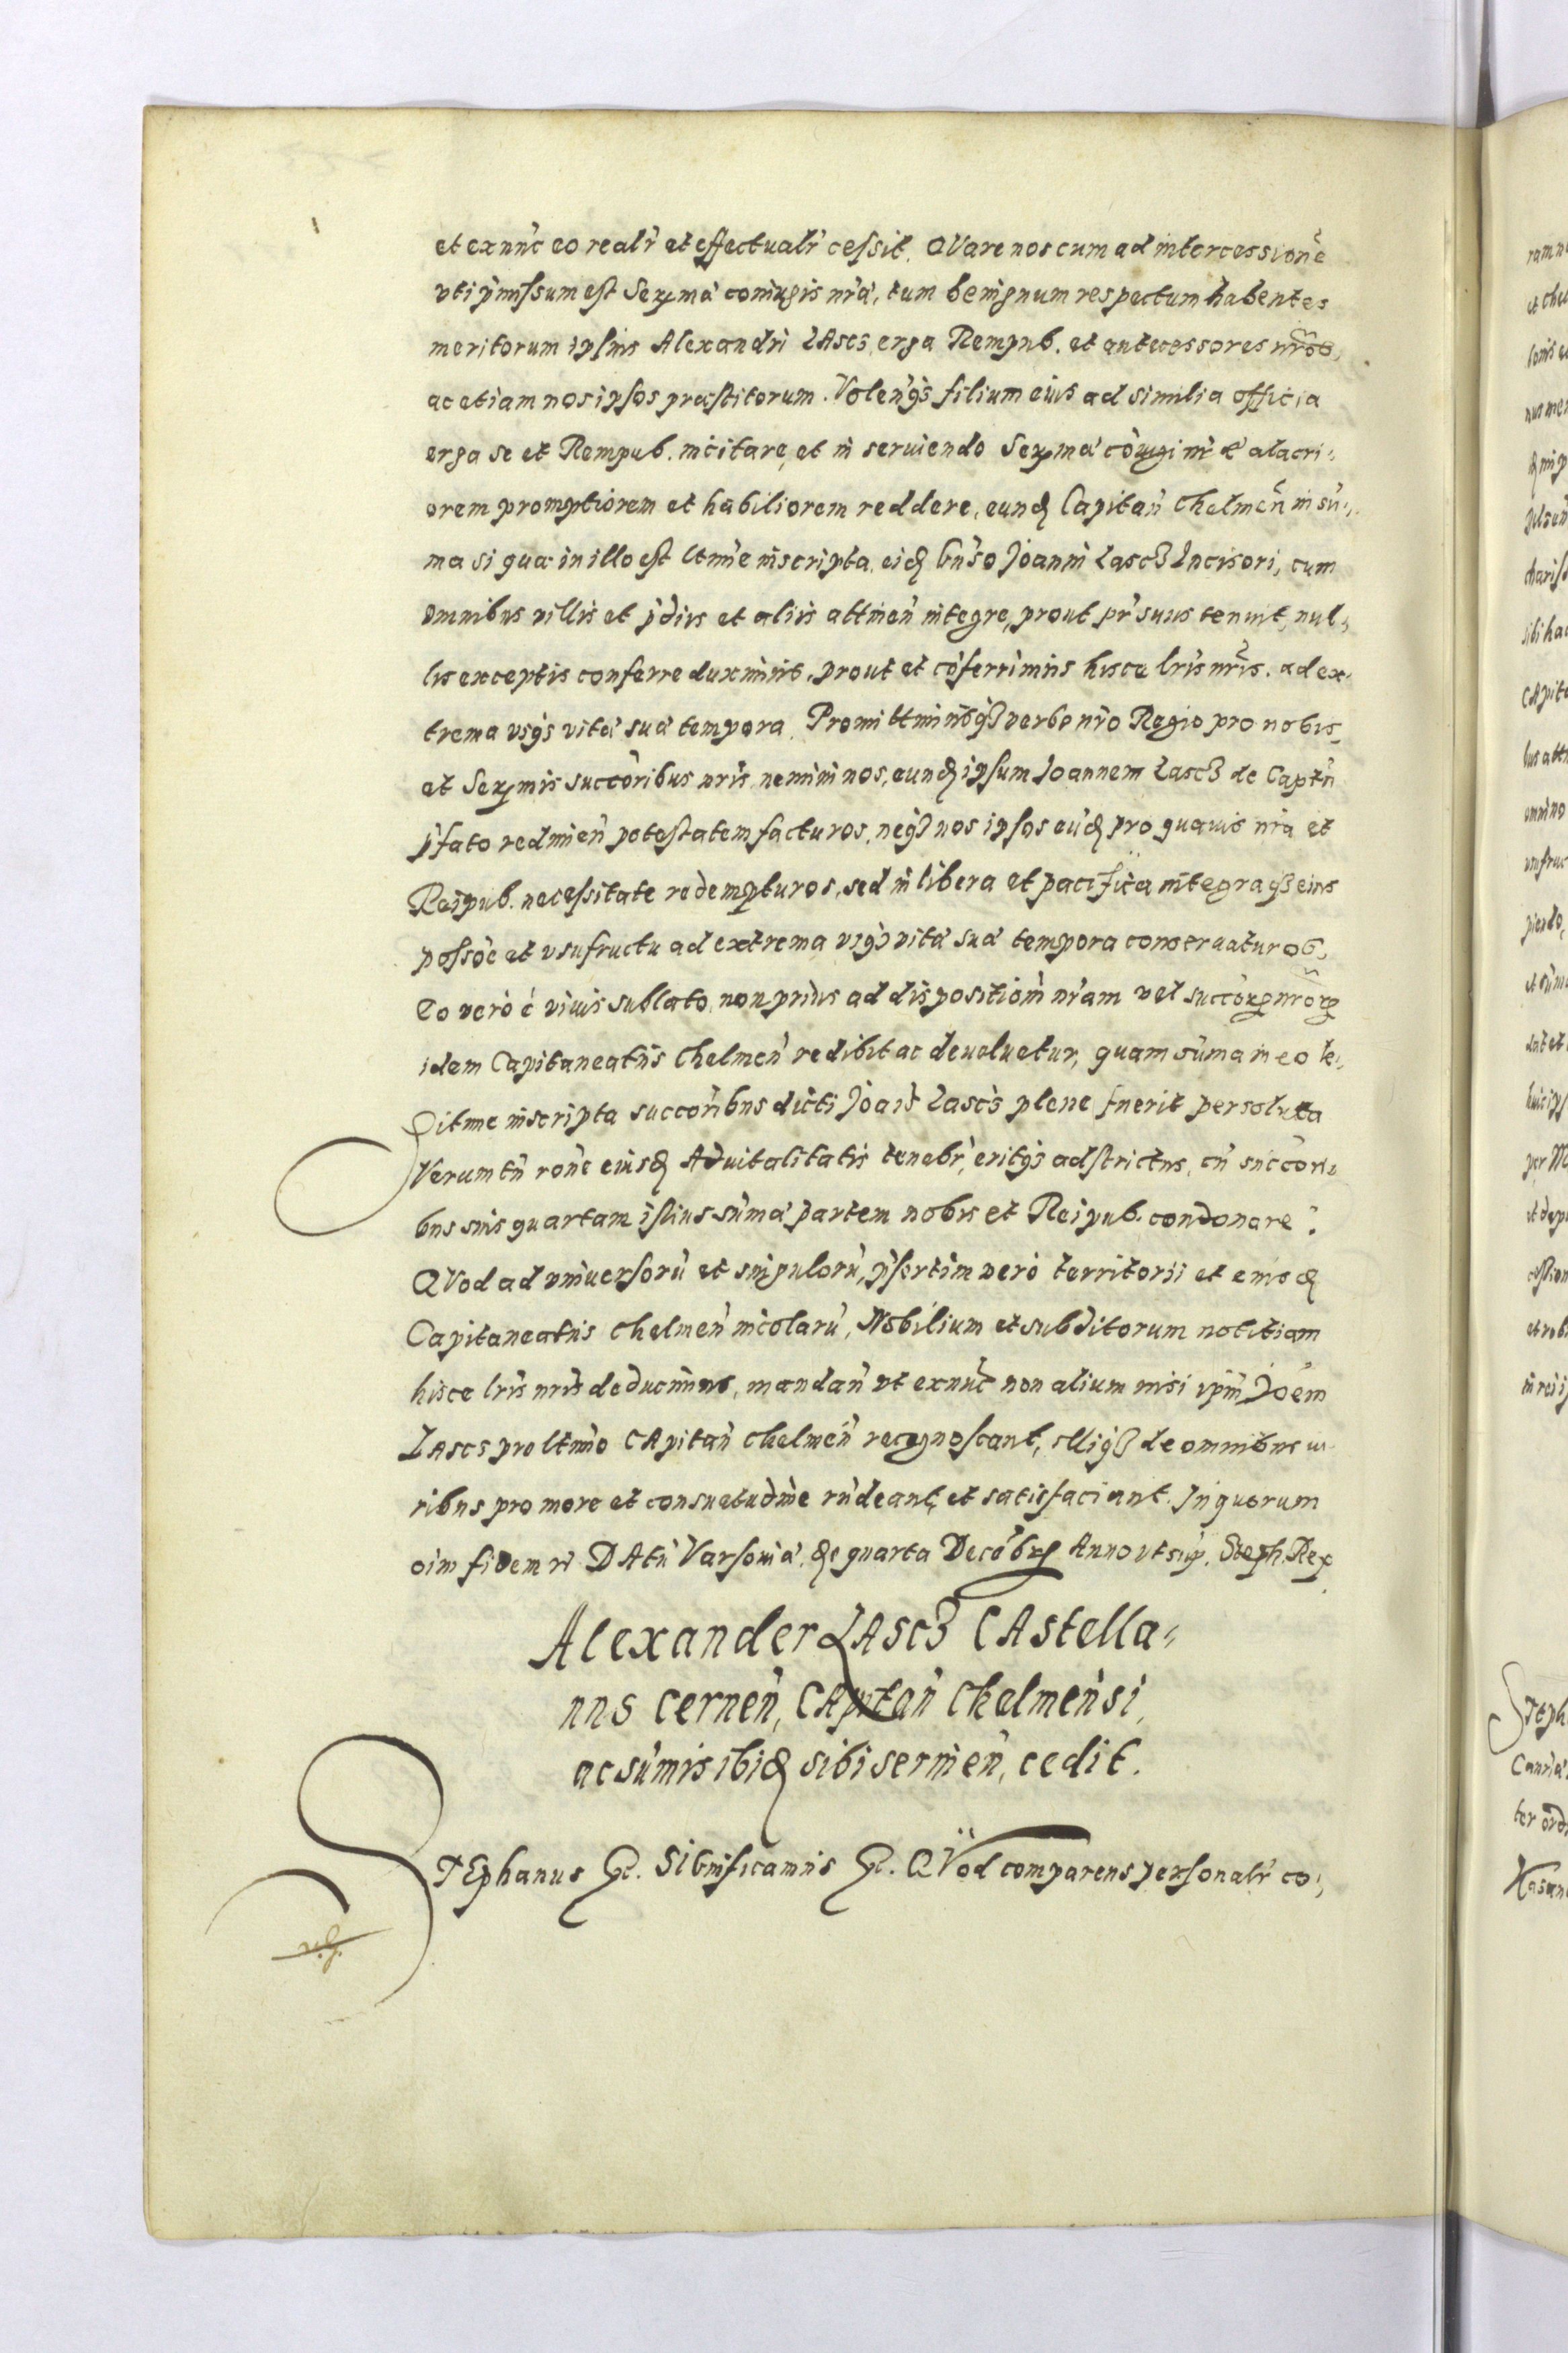 et exnūc eo realr̄ et effectualr̄ cessit. QVare nos cum ad intercessionē
vti p̄missum est Serx̄mæ coniugis nr̄æ, tum benignum respectum habentes
meritorum ipsius Alexandri LAscs erga Rempub. et antecessores nr̄os,
ac etiam nos ipsos præstitorum. Volen̄qs filium eius ad similia officia
erga se et Rempub. incitare, et in seruiendo Serx̄mæ cōiugi nr̄æ alacri-
orem promptiorem et habiliorem reddere, eundē Capitan̄ Chelmen̄ in sūm-
ma si quæ in illo est ltime inscripta, eidē Gn̄so Joanni Lascz Incisori, cum
omnibus villis et p̄diis et aliis attinen̄ integre, prout pr̄ suus tenuit, nul-
lis exceptis conferre duximus, prout et cōferrimus hisce lr̄is nr̄is. ad ex-
trema vsqs vitæ suæ tempora. Promittimūsqz verbo nr̄o Regio pro nobis
et Serx̄mis succōribus nr̄is, nemini nos, eundē ipsum Joannem Lascz de Captn̄
p̄fato redimen̄ potestatem facturos, neqz nos ipsos eūdē pro quauis nr̄a et
Reipub. necessitate redempturos, sed in libera et pacifica integraqz eius
possōe et vsufructu ad extrema vsqz vitæ suæ tempora conseruaturos,
Eo verò è viuis sublato, non prius ad dispositiōm nr̄am vel succōrx nr̄ōrx
idem Capitaneatus Chelmen̄ redibit ac deuoluetur, quam sūma in eo le-
gitime inscripta succōribus dicti Joāis Lascs plene fuerit persoluta
Verum tn̄ rōne eiusdē Aduitalitatis tenebr̄, eritqs adstrictus, cū succōri-
bus suis quartam istius sūmæ partem nobis et Reipub. condonare.
QVod ad vniuersorū et singulorū, p̄sertim vero territorii et eiusdē
Capitaneatus Chelmen̄ incolarū, Nobilium et subditorum notitiam
hisce lr̄is nr̄is deducimus, mandan̄ vt exnūc non alium nisi ipm̄ Joēm
LAscs pro ltimo CApitan̄ Chelmen̄ recognoscant, illiqz de omnibus iu-
ribus pro more et consuetudine rn̄deant, et satisfaciant. In quorum
oīm fidem rē DAtū Varsouiæ, die quarta Decēbrx Anno vt sup. Steph. Rex
Alexander LAscz CAstella-
nus Cernen̄, CApitan̄ Chelmen̄si,
ac sūmis ibidē sibi seruien̄, cedit.
STEphanus &c. SIGnificamus &c. QVod comparens personalr̄ co-